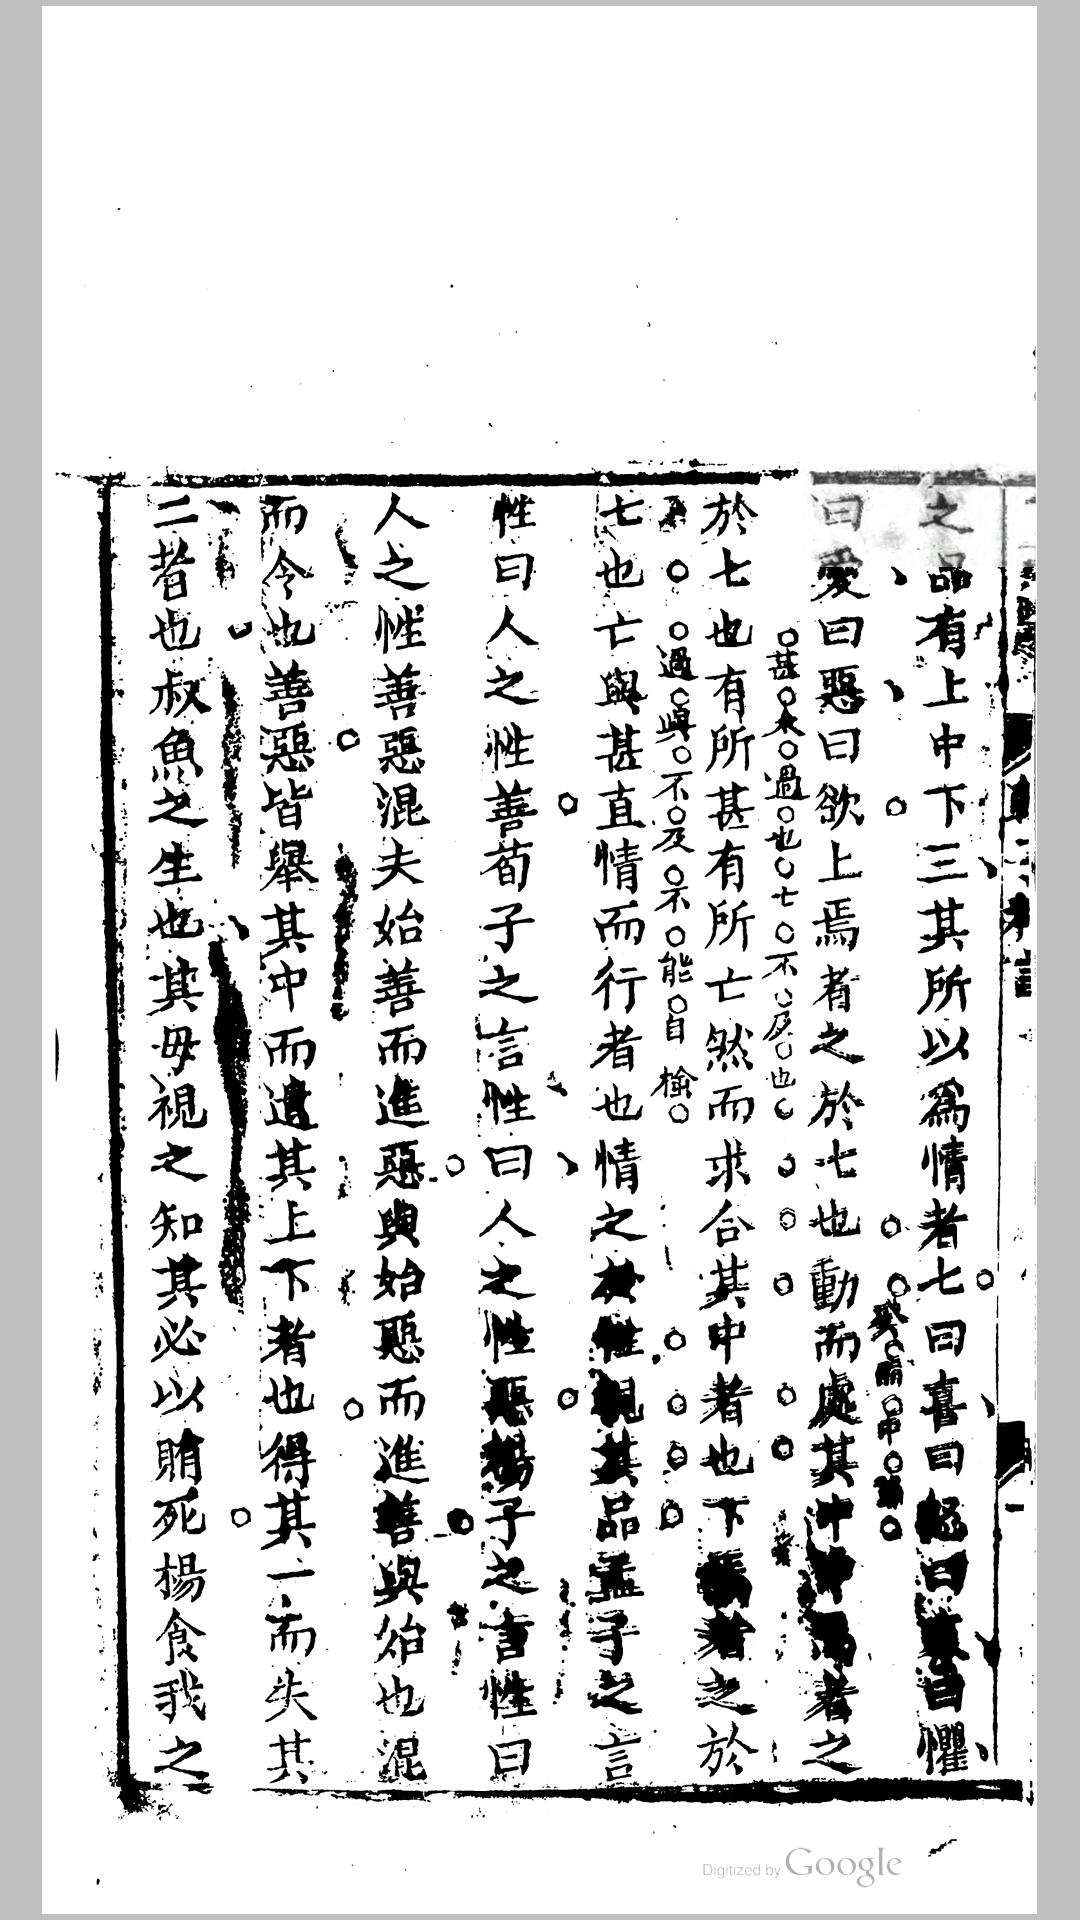 之品有上中下三其所以爲情者七曰喜曰怒曰哀曰懼
曰愛曰惡曰欲上焉者之於七也動而處其中中焉者之
甚太過也亡不及也
於七也有所甚有所亡然而求合其中者也下焉者之於
過與不及不能自檢
七也亡與甚直情而行者也情之於性視其品孟子之言
性曰人之性善荀子之言性曰人之性惡楊子之言性曰
人之性善惡混夫始善而進惡與始惡而進善與始也混
而今也善惡皆舉其中而遺其上下者也得其一而失其
二者也叔魚之生也其母視之知其必以賄死楊食我之
Digitized by Google